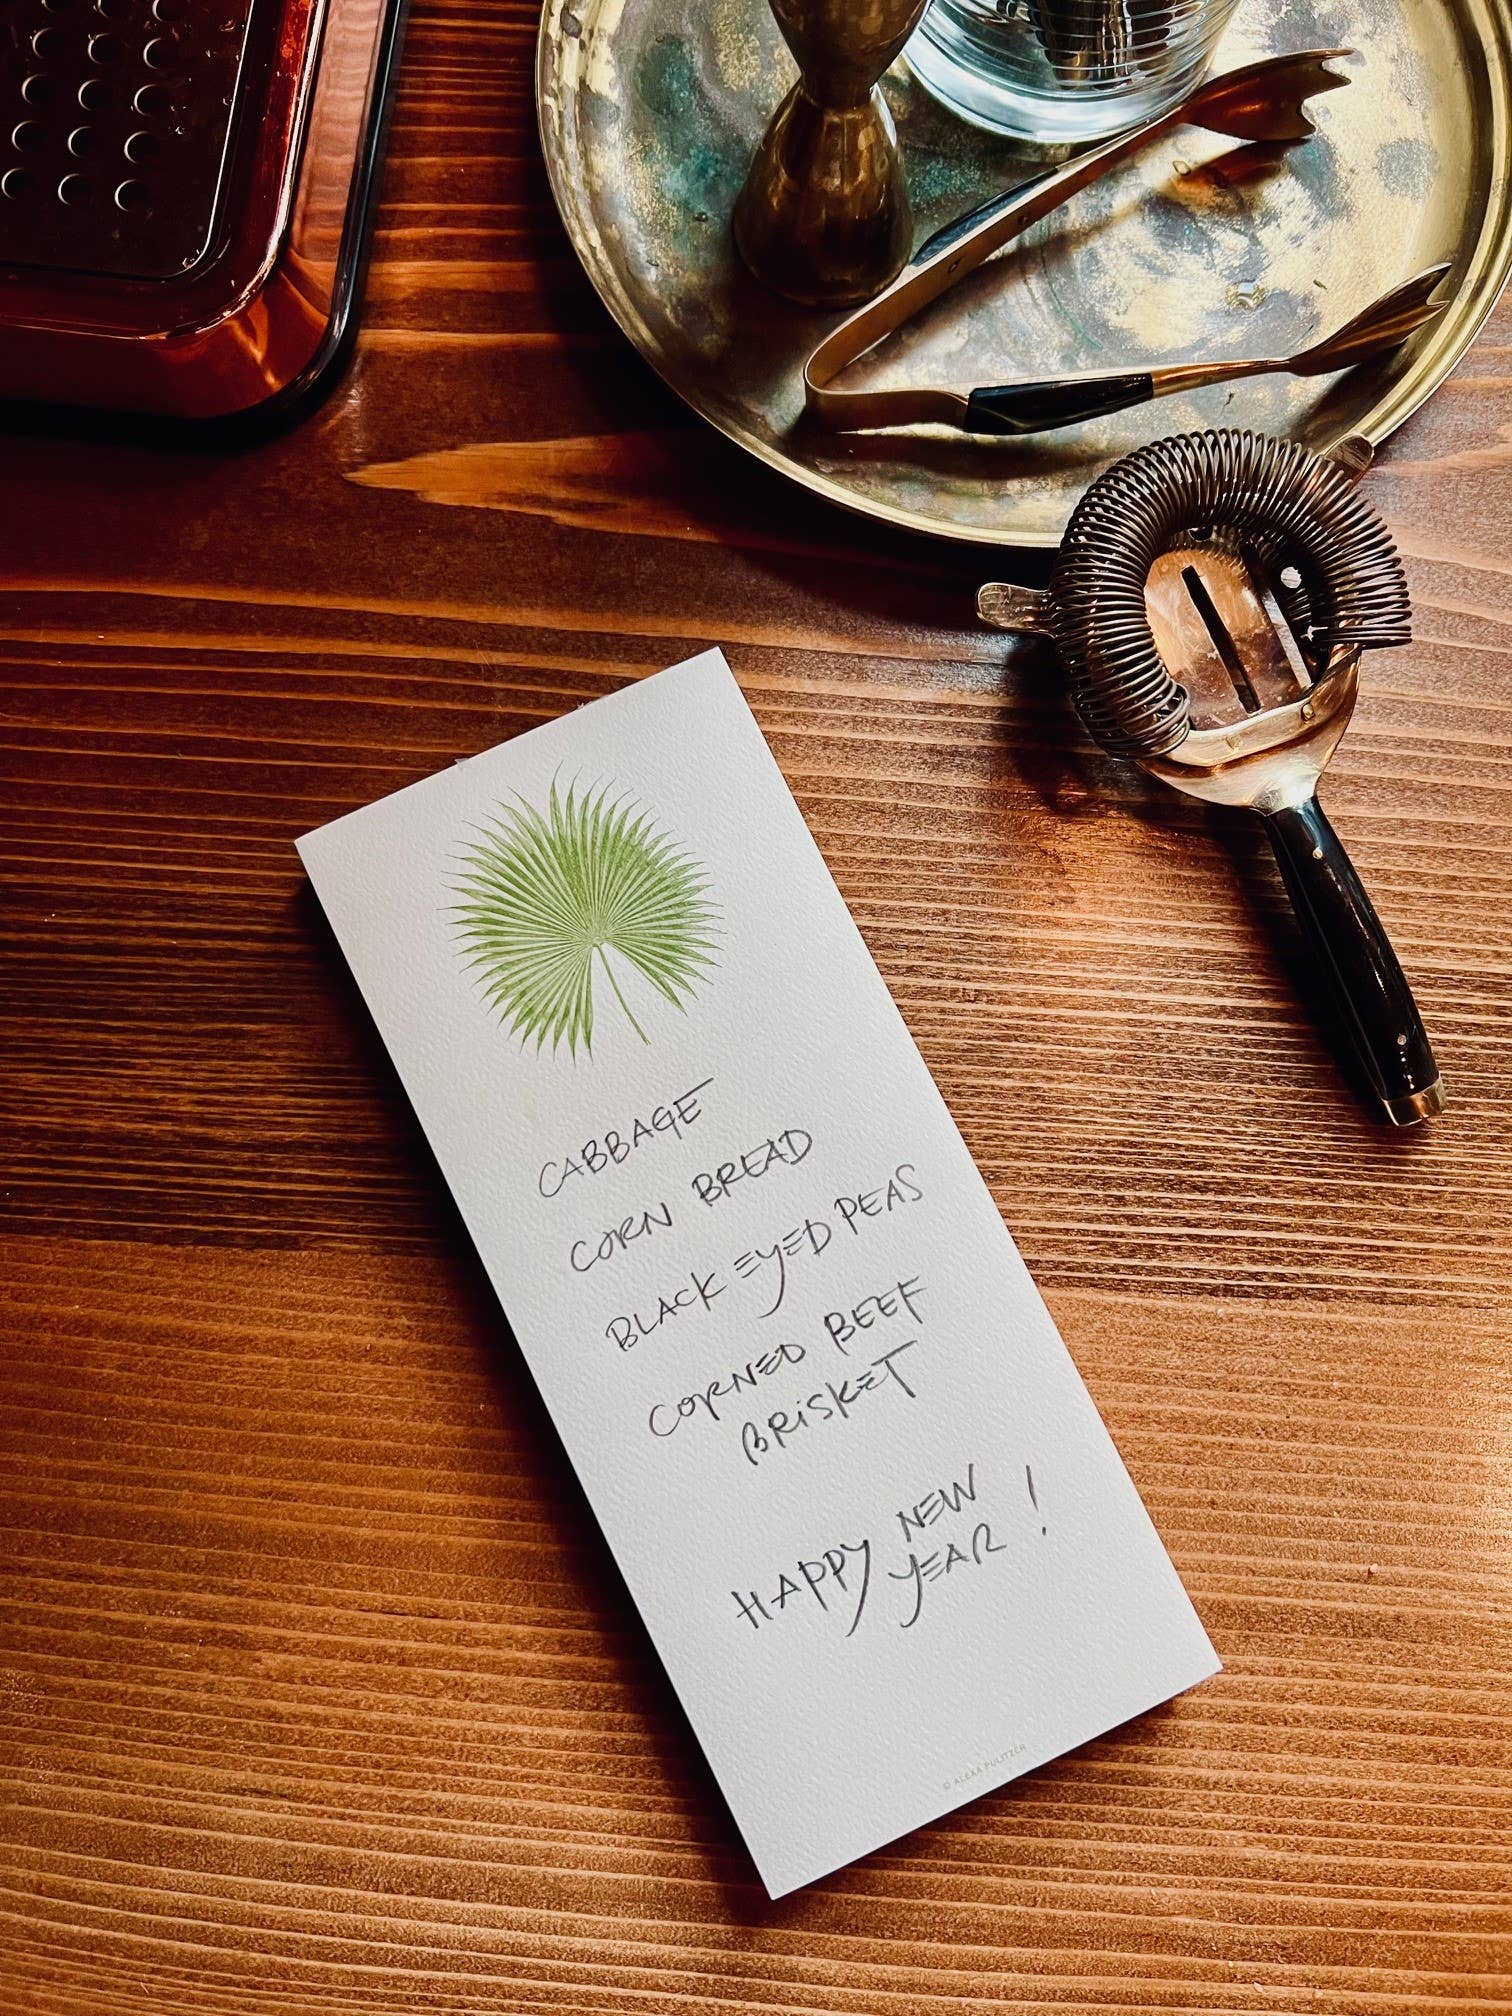 CABBAGE
CORN BREAD
BLACK EYED PEAS
CORNED BEEF
BRiSKET
HAPPY NEW
YEAR !
© ALEXA PULITZER